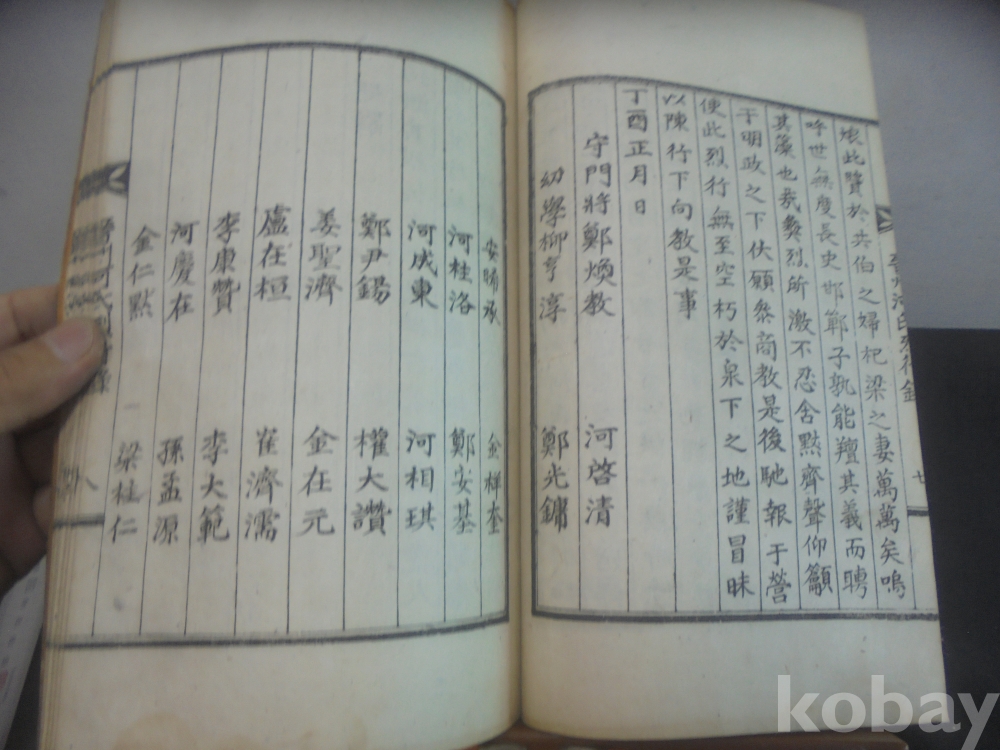 娘此贊於共伯之婦杞梁之妻萬萬矣嗚
呼世無度長史邯鄲子孰能擅其義而聘
其藻也哉彝烈所激不忍含默齊聲仰籲
于明政之下伏願叅商教是後馳報于營
使此烈行無至空朽於泉下之地謹冒昧
以陳行下向教是事
丁酉正月日
守門將鄭煥教 河啓清
幼學柳亨淳 鄭光鏞
安 承 金祥奎
河桂洛 鄭安基
河成東 河相琪
鄭尹錫 權大讚
姜聖濟 金在元
盧在桓 崔濟濡
李康贊 李大範
河慶在 孫孟源
金仁默 梁柱仁
八
kobay